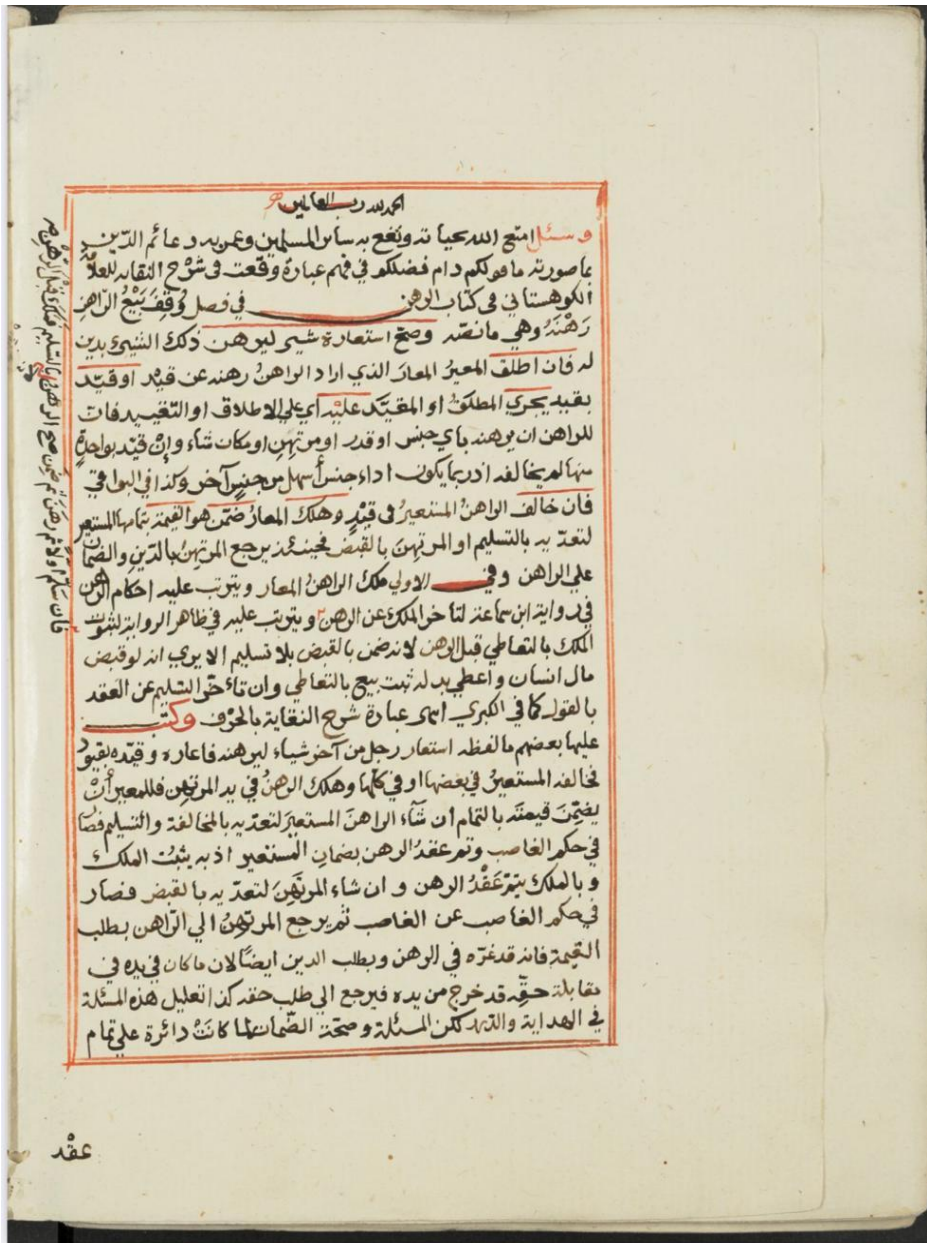 الحمد لله رب العالمين
وسئل امتع الله بحياته ونفع به سائر المسلمين وعمن به دعائم الدين
بما صورته ما قولكم دام فضلكم في فهم عبارة وقعت في شرح النقايه للعلامة
الكوهستاني في كتاب الرهن في فصل وُقِفَ بَيْعُ الرّاهنِ
رَهْنَهُ وهي ما نصّه وصحّ استعارة شيء ليرهن ذلك الشيئ بدين
له فان اطلق المعيرُ المعارَ الذي اراد الراهنُ رهنه عن قيْد او قيّد
بقيد يجري المطلقُ او المقيّد عليْه أي علي الاطلاق او التقييد فانّ
للراهن ان يرهنه بأي جنس او قدر او مرتهِنٍ او مكان شاء وإنْ قيّد بواحدةٍ
منها لم يخالفه اذ ربما يكون اداء جنس أسهل من جنسٍ آخر وكذا في البواقي
فان خالف الراهنُ المستعيرُ في قيْدٍ وهلك المعارُ ضمّن هو القيمة بتمامها المستعير
لتعدّيه بالتسليم او المرتهِنَ بالقبض فحينئذ يرجع المرتهنُ بالدّين والضمان
علي الراهن وفي الاولي ملك الراهنُ المعار ويترتب عليه احكام الرهن
في رواية ابن سماعة لتاخر الملك عن الرهن ويترتب عليه في ظاهر الرواية لثبوت
الملك بالتعاطي قبل الرهن لانه ضمن بالقبض بلا تسليم الا يري انه لو قبض
مال انسان واعطي بدله ثبت بيع بالتعاطي وان تأخّر التسليم عن العقد
بالقول كما في الكبري انتهى عبارة شرح النقاية بالحرْف وكتب
عليها بعضهم ما لفظه استعار رجل من آخر شياء ليرهنه فاعاره وقيّده بقيود
فخالفه المستعيرُ في بعضها او في كلّها وهلك الرهنُ في يد المرتهن فللمعير أنْ
يضمّنَ قيمته بالتمام أن شآء الراهنَ المستعيرَ لتعدّيه بالمخالفة والتسليم فصار
في حكم الغاصب وتم عقدُ الرهن بضمانِ المستعير اذ به يثبُت الملك
وبالملك يتمّ عَقْدُ الرهن وان شاء المرتَهِنَ لتعدّيه بالقبض فصار
في حكم الغاصب عن الغاصب ثم يرجع المرتهِنُ الي الرّاهن بطلب
القيمة فانه قد غرّه في الرهن وبطلب الدين ايضاً لان ما كان في يده في
مقابلة حقّه قد خرج من يده فيرجع الي طلب حقه كذا تعليل هذه المسئلة
في الهداية والدرر لكن المسئلة وصحّة الضّمان لما كانَتْ دائرة علي تمام
عقْد
فان سَلّم اولاً ثم رهَن ثم ضمِن صح الرهن بالتسليم فملكه قبل الرهْن